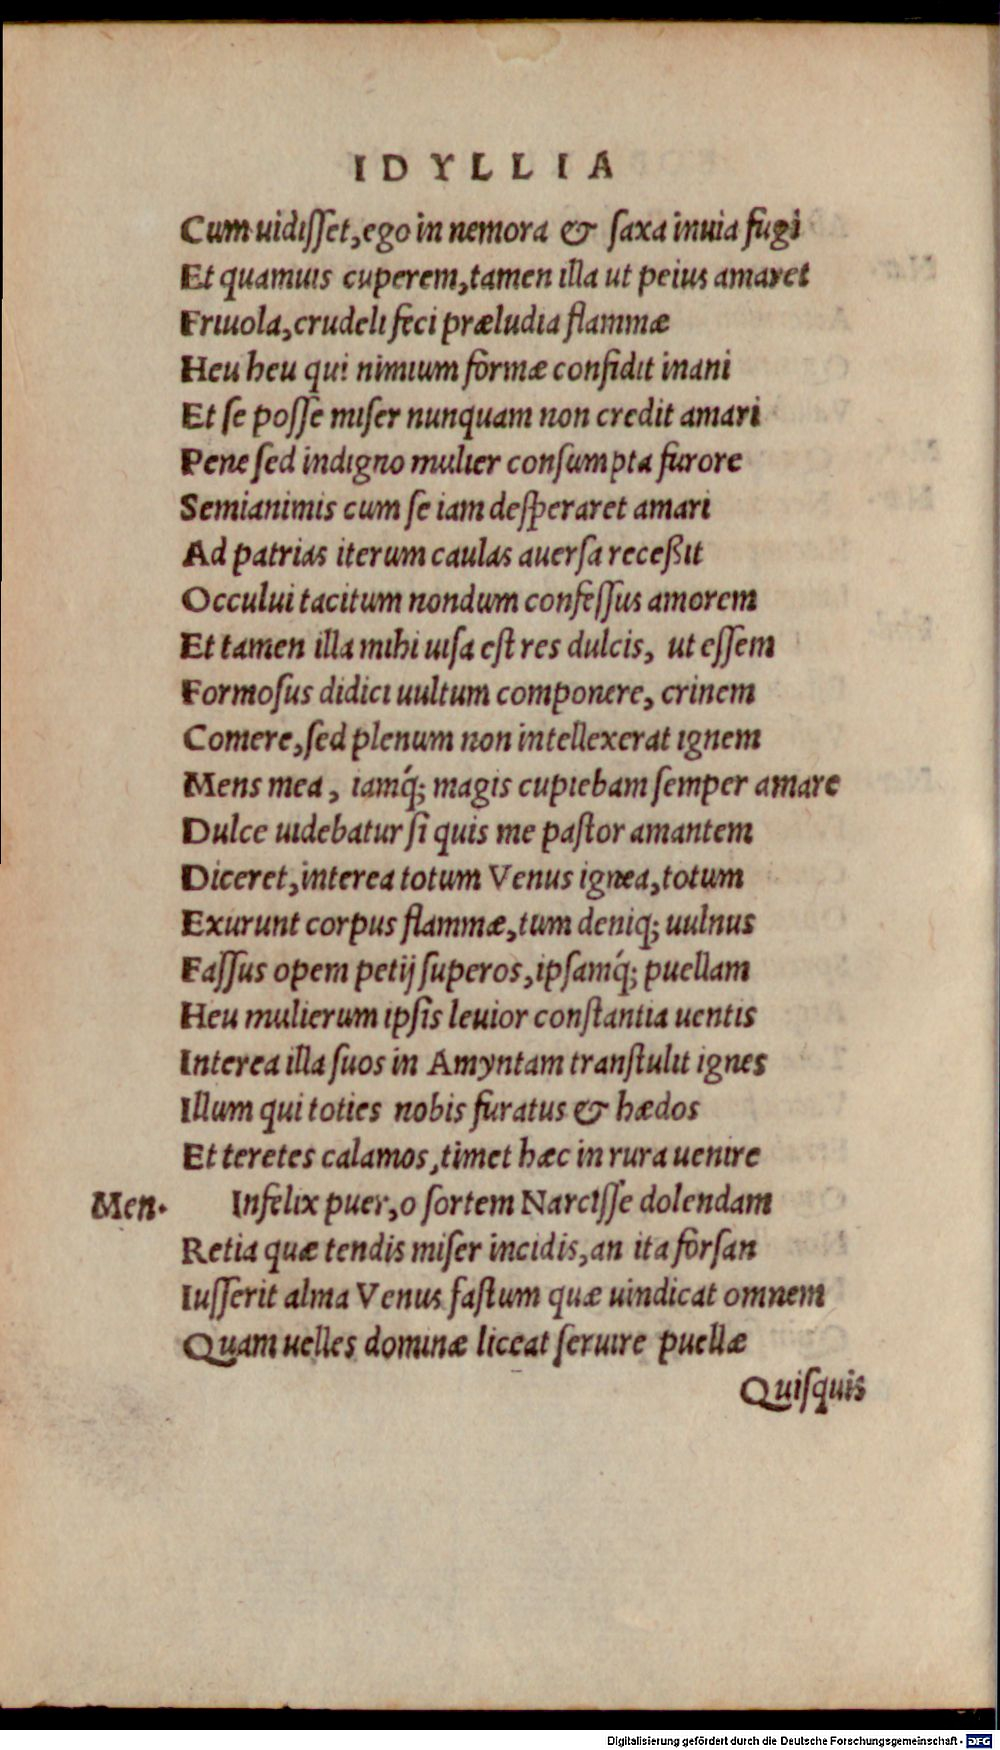 IDYLLIA
Cum uidiſſet, ego in nemora & ſaxa inuia fugi
Et quamuis cuperem, tamen illa ut peius amaret
Friuola, crudeli feci præludia flammæ
Heu heu qui nimium formæ confidit inani
Et ſe poſſe miſer nunquam non credit amari
Pene ſed indigno mulier conſumpta furore
Semianimis cum ſe iam deſperaret amari
Ad patrias iterum caulas auerſa receßit
Occului tacitum nondum confeſſus amorem
Et tamen illa mihi uiſa eſt res dulcis, ut eſſem
Formoſus didici uultum componere, crinem
Comere, ſed plenum non intellexerat ignem
Mens mea, iamq́; magis cupiebam ſemper amare
Dulce uidebatur ſi quis me paſtor amantem
Diceret, interea totum Venus ignea, totum
Exurunt corpus flammæ, tum deniq; uulnus
Faſſus opem petij ſuperos, ipſamq́; puellam
Heu mulierum ipſis leuior conſtantia uentis
Interea illa ſuos in Amyntam tranſtulit ignes
Illum qui toties nobis furatus & hædos
Et teretes calamos, timet hæc in rura uenire
Men. Infelix puer, o ſortem Narciſſe dolendam
Retia quæ tendis miſer incidis, an ita forſan
Iuſſerit alma Venus faſtum quæ uindicat omnem
Quam uelles dominæ liceat ſeruire puellæ
Quiſquis
Digitalisierung gefördert durch die Deutsche Forschungsgemeinschaft - DFG